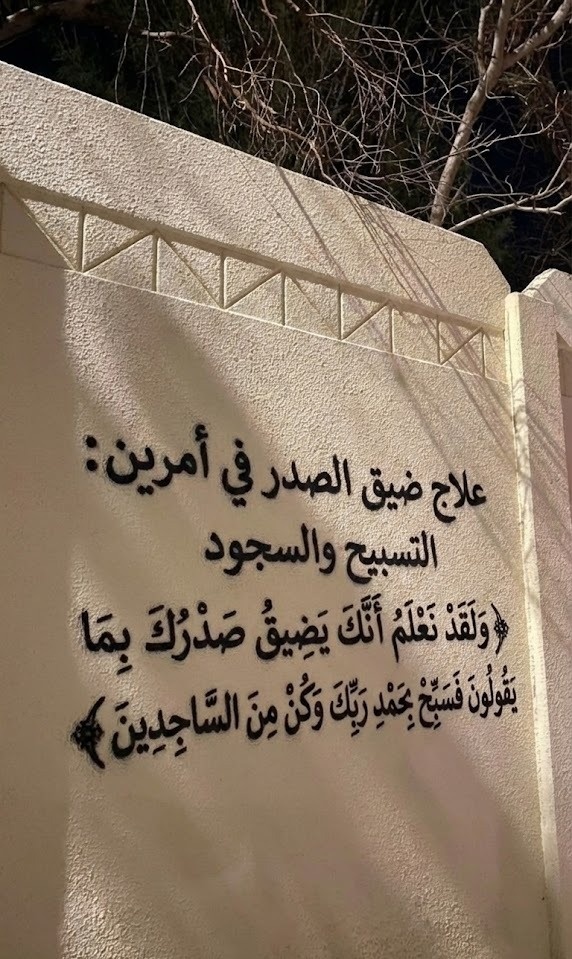 علاج ضيق الصدر في أمرين:
التسبيح والسجود
﴿وَلَقَدْ نَعْلَمُ أَنَّكَ يَضِيقُ صَدْرُكَ بِمَا
يَقُولُونَ فَسَبِّحْ بِحَمْدِ رَبِّكَ وَكُنْ مِنَ السَّاجِدِينَ﴾